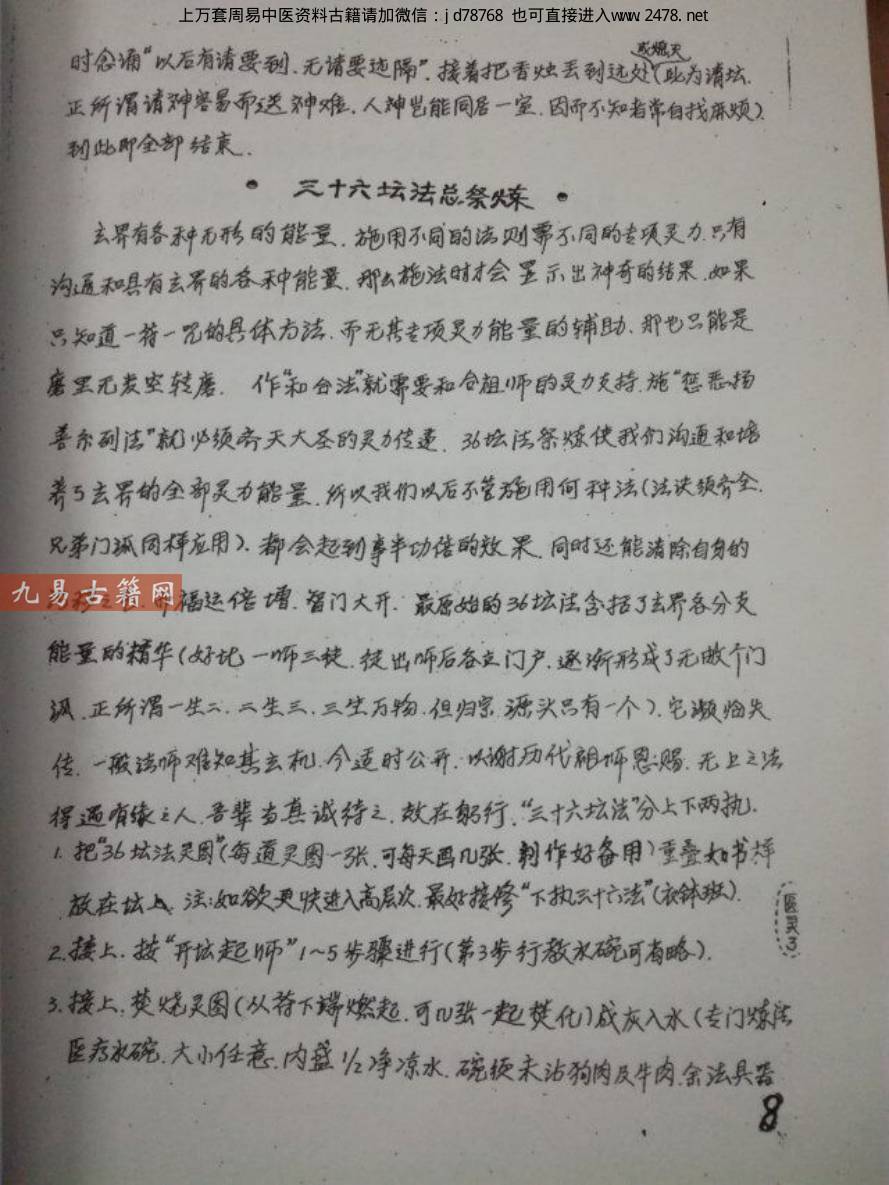 上万套周易中医资料古籍请加微信：jd78768 也可直接进入www.2478.net
或熄灭
时念诵“以后有请要到.无请要远隔”.接着把香烛丢到远处(此为清坛.
正所谓请神容易而送神难.人神岂能同居一室.因而不知者常自找麻烦).
到此即全部结束.
• 三十六坛法总祭炼 •
玄界有各种无形的能量.施用不同的法则需不同的专项灵力.只有
沟通和具有玄界的各种能量.那么施法时才会显示出神奇的结果.如果
只知道一符一咒的具体方法.而无其专项灵力能量的辅助.那也只能是
磨里无麦空转磨. 作“和合法”就需要和合祖师的灵力支持.施“惩恶扬
善系列法”就必须齐天大圣的灵力传递. 36坛法祭炼使我们沟通和培
养了玄界的全部灵力能量.所以我们以后不管施用何种法(法诀须齐全.
兄弟门派同样应用).都会起到事半功倍的效果.同时还能清除自身的
九易古籍网
福运倍增.智门大开. 最原始的36坛法含括了玄界各分支
能量的精华(好比一师三徒.徒出师后各立门户.逐渐形成了无数个门
派.正所谓一生二.二生三.三生万物.但归宗.源头只有一个).它濒临失
传.一般法师难知其玄机.今适时公开.以谢历代祖师恩赐.无上之法
得遇有缘之人.吾辈当真诚待之.故在躬行.“三十六坛法”分上下两执.
1.把“36坛法灵图”(每道灵图一张.可每天画几张.制作好备用)重叠如书样
放在坛上.注:如欲更快进入高层次.最好接修“下执三十六法”(衣钵班).
2.接上.按“开坛起师”1~5步骤进行(第3步行教水碗可省略).
3.接上.焚烧灵图(从符下端燃起.可几张一起焚化)成灰入水(专门炼法
医疗水碗.大小任意.内盛1/2净凉水.碗须未沾狗肉及牛肉.余法具器
医灵3
8